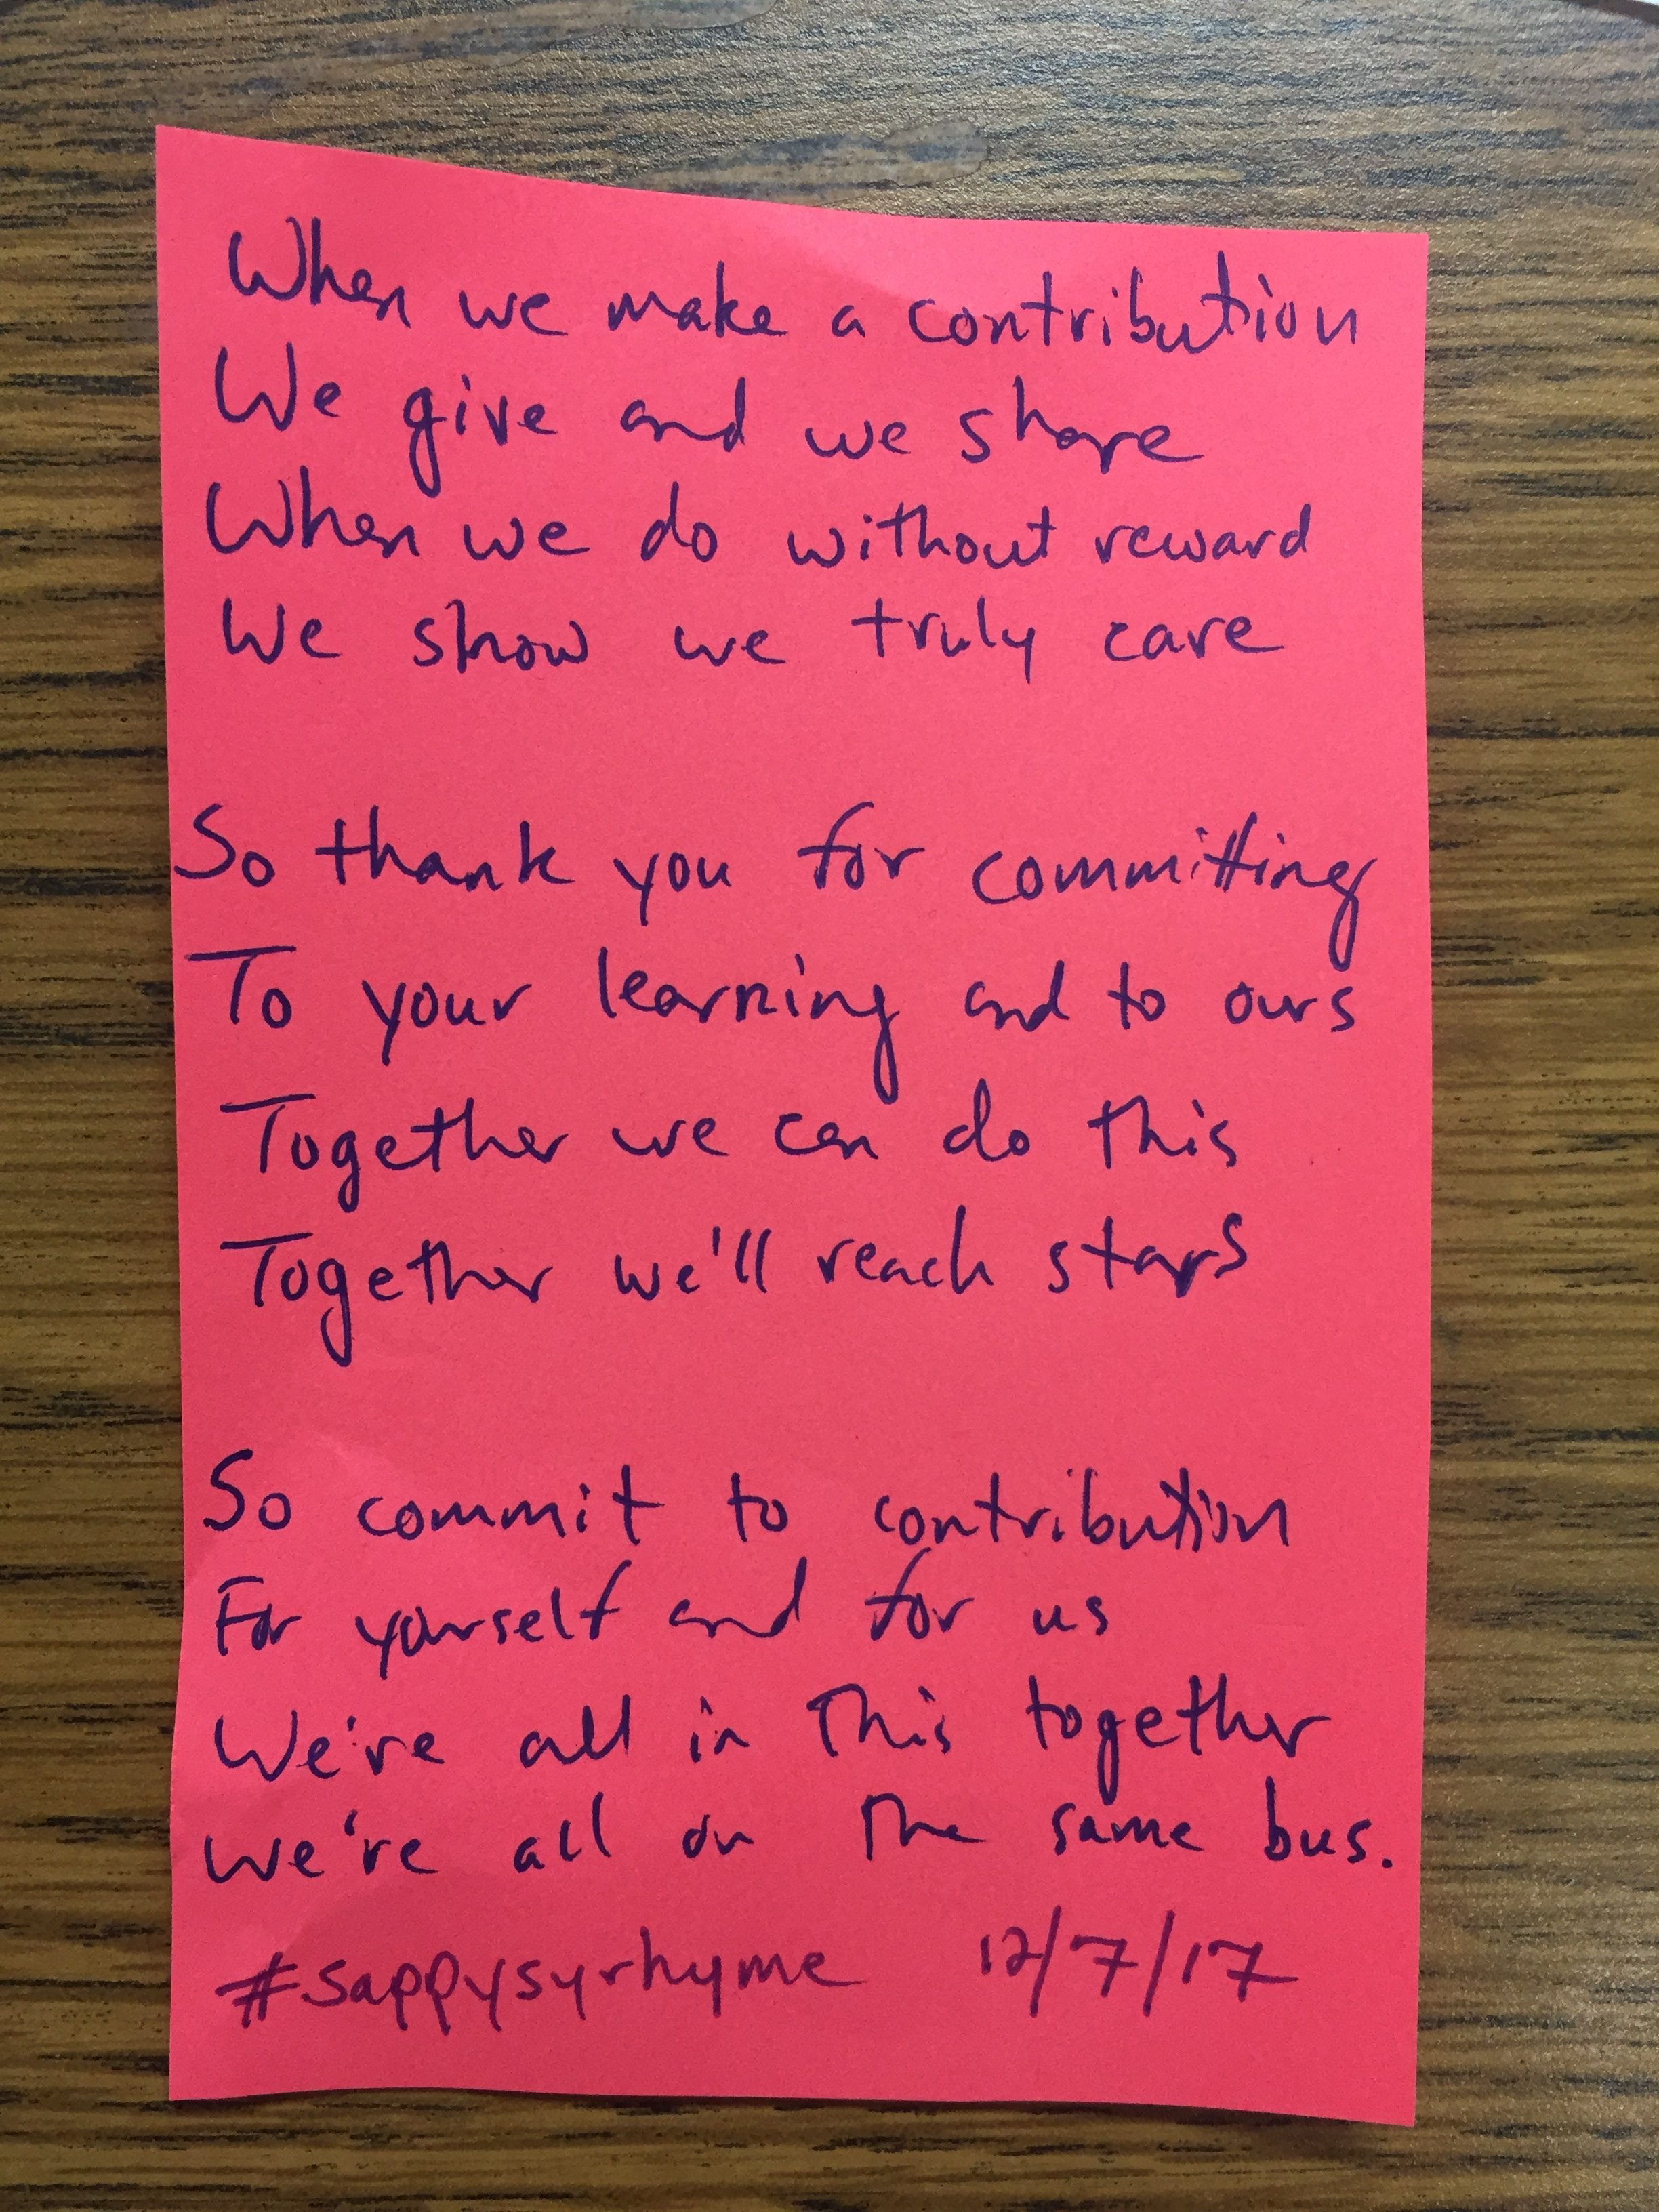 When we make a contribution
We give and we share
When we do without reward
We show we truly care
So thank you for committing
To your learning and to ours
Together we can do this
Together we'll reach stars
So commit to contribution
For yourself and for us
We're all in this together
We're all on the same bus.
#sappysyrhyme 12/7/17